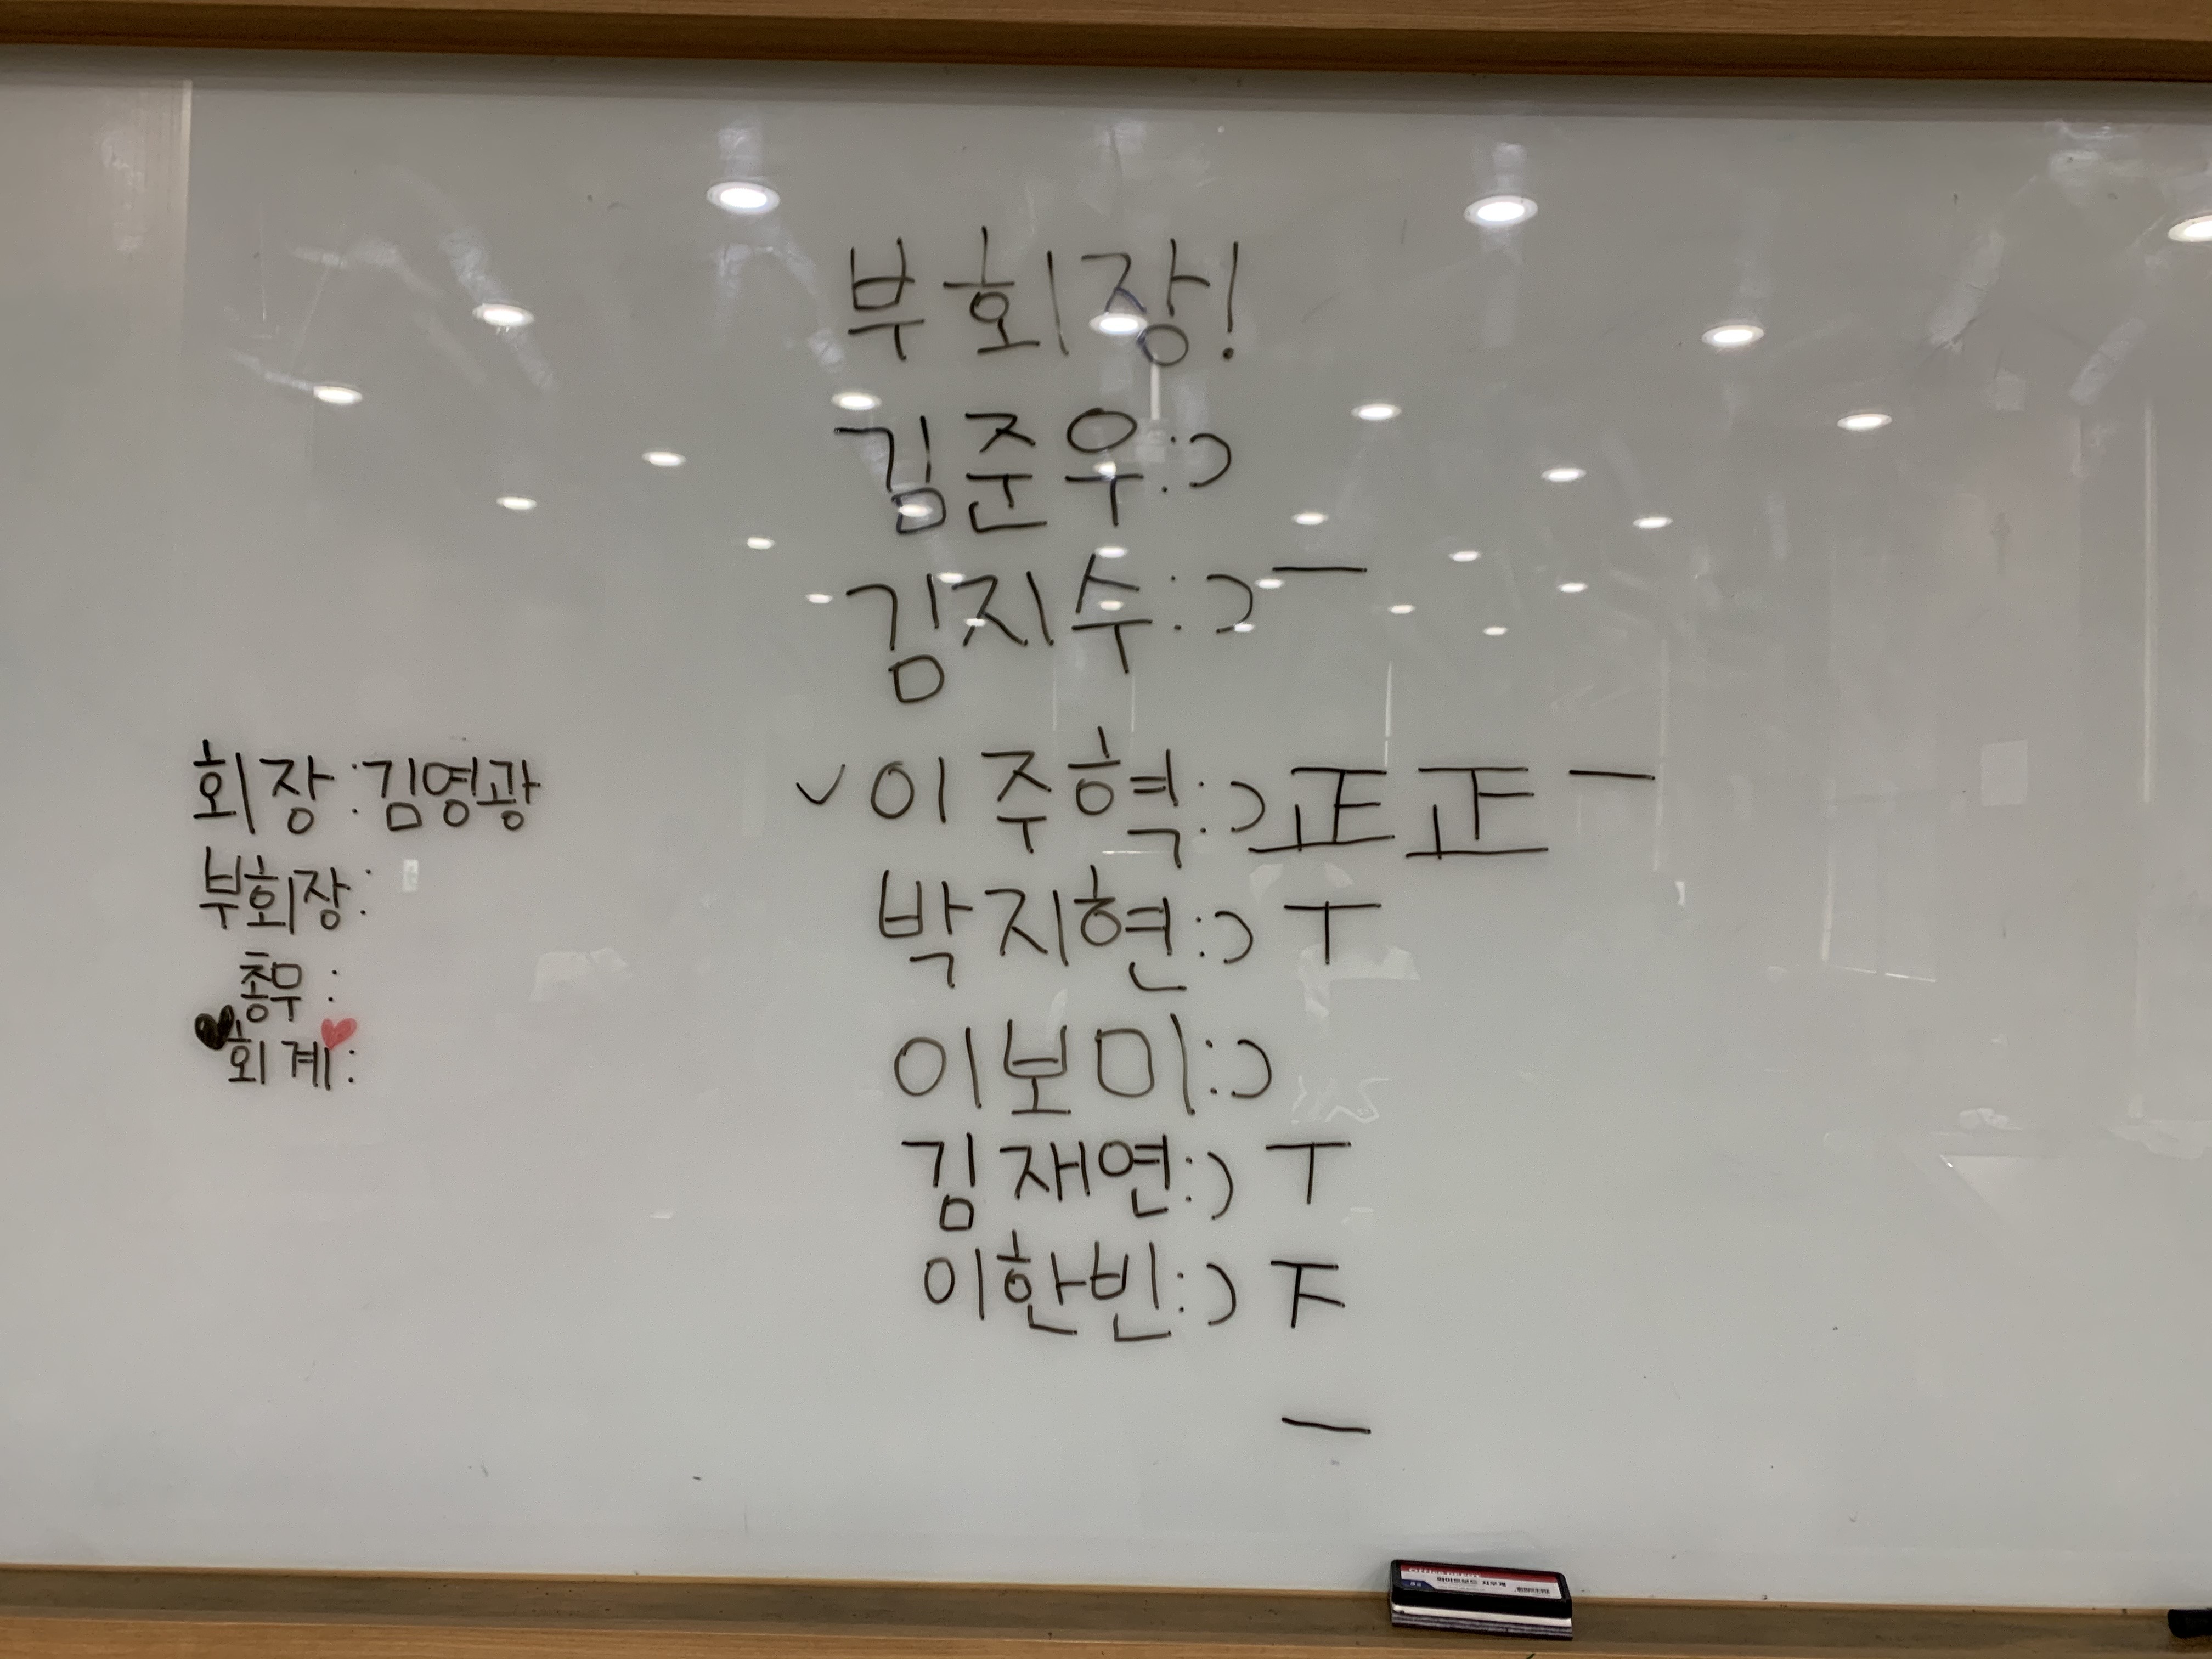 부회장!
김준우:)
김지수:) 一
✓이주혁:) 正正一
박지현:) T
이보미:)
김재연:) T
이한빈:) F
一
회장:김영광
부회장:
총무:
회계: